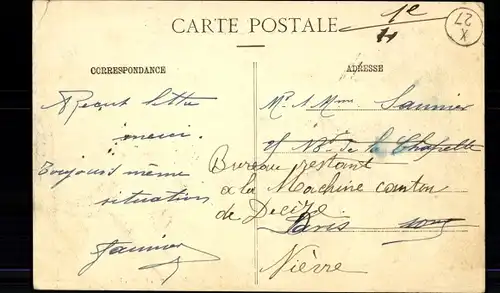 CARTE POSTALE
X
27
CORRESPONDANCE
ADRESSE
Reçut lettre
merci.
Toujours même
situation
Saunier
Mr & Mme Saunier
Bd de la Chapelle
Bureau restant
a la Machine canton
de Decize
Paris
Nièvre